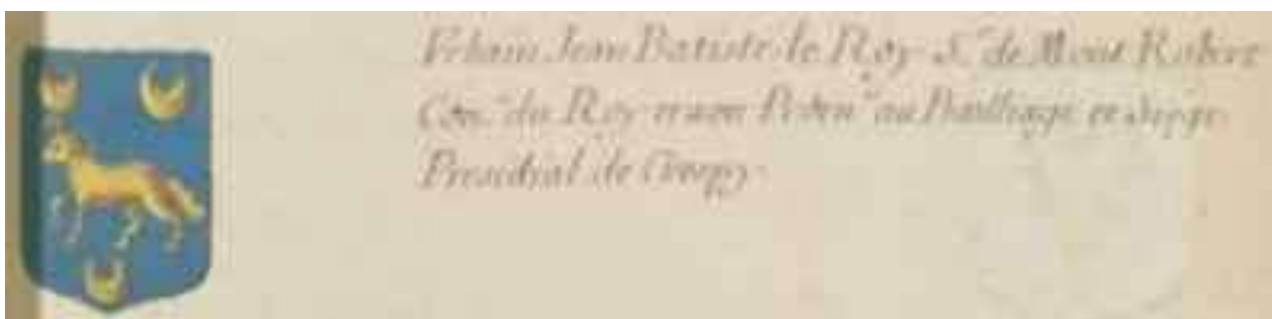 Urbain Jean Batiste le Roy S.r de Mont Robert
Con.er du Roy et son au Bailliage et siege
Presidial de Crespy